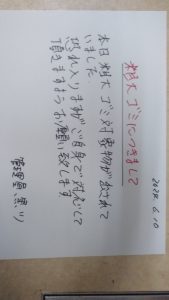 2024.6.10
粗大ゴミにつきまして
本日粗大ゴミ対象物が されて
いました。
恐れ入りますがご自身で対応して
頂きますようお願い致します
管理